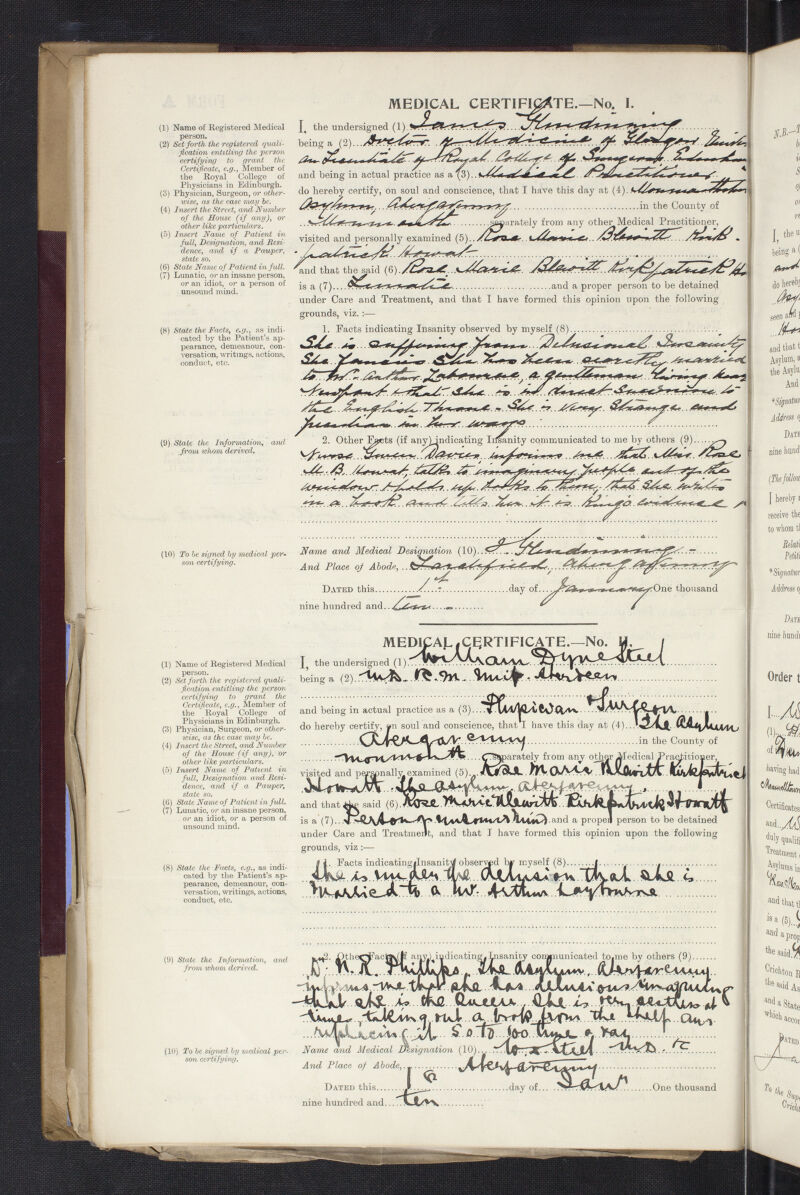 MEDICAL CERTIFICATE.—No. I.
(1) Name of Registered Medical person.
(2) Set forth the registered quali-
fication entitling the person
certifying to grant the
Certificate, e.g., Member of
the Royal College of
Physicians in Edinburgh.
(3) Physician, Surgeon, or other-
wise, as the case may be.
(4) Insert the Street, and Number
of the House (if any), or
other like particulars.
(5) Insert Name of Patient in
full, Designation, and Resi-
dence, and if a Pauper,
state so.
(6) State Name of Patient in full.
(7) Lunatic, or an insane person,
or an idiot, or a person of
unsound mind.
I, the undersigned (1) James Glendinning
being a (2) Doctor of Medicine of Glasgow
an Licentiate of Royal College of Surgeons
and being in actual practice as a (3) Medical Practitioner
do hereby certify, on soul and conscience, that I have this day at (4) Monmouthshire
Asylum, Abergavenny in the County of
Monmouth separately from any other Medical Practitioner,
visited and personally examined (5) Rose Marie Blewitt Kirk-
patrick Howat
and that the said (6) Rose Marie Blewitt Kirkpatrick Ho
is a (7) Lunatic and a proper person to be detained
under Care and Treatment, and that I have formed this opinion upon the following
grounds, viz. :—
(8) State the Facts, e.g., as indi-
cated by the Patient's ap-
pearance, demeanour, con-
versation, writings, actions,
conduct, etc.
1. Facts indicating Insanity observed by myself (8)
She is suffering from Delusional Insanity
She fancies she has been secretly married
to Mr. Arthur a gentleman living near
Newport & that she is in direct Succession to
the English Throne. She is very Strange and
peculiar in her ways
(9) State the Information, and
from whom derived.
2. Other Facts (if any) indicating Insanity communicated to me by others (9)
Nurse Gwen Davies informs me that Miss Rose
M. B. Howat, talks to imaginary people out of the
window & holds up books to them, that she writes
in a book and tells her it is Kings evidence
(10) To be signed by medical per-
son certifying.
Name and Medical Designation (10) J Glendinning
And Place of Abode, Abergavenny
DATED this 1st day of January One thousand
nine hundred and ten
MEDICAL CERTIFICATE.—No. II.
(1) Name of Registered Medical
person.
(2) Set forth the registered quali-
fication entitling the person
certifying to grant the
Certificate, e.g., Member of
the Royal College of
Physicians in Edinburgh.
(3) Physician, Surgeon, or other-
wise, as the case may be.
(4) Insert the Street, and Number
of the House (if any), or
other like particulars.
(5) Insert Name of Patient in
full, Designation and Resi-
dence, and if a Pauper,
state so.
(6) State Name of Patient in full.
(7) Lunatic, or an insane person,
or an idiot, or a person of
unsound mind.
I, the undersigned (1) William Dyne Steel
being a (2) M.D. C.M. Univ. Aberdeen
and being in actual practice as a (3) Physician & Surgeon
do hereby certify, on soul and conscience, that I have this day at (4) The Asylum
Abergavenny in the County of
Monmouth separately from any other Medical Practitioner,
visited and personally examined (5) Rose Marie Blewitt Kirkpatrick
Howatt The Asylum Abergavenny.
and that the said (6) Rose Marie Blewitt Kirkpatrick Howatt
is a (7) Person of unsound mind and a proper person to be detained
under Care and Treatment, and that I have formed this opinion upon the following
grounds, viz :—
(8) State the Facts, e.g., as indi-
cated by the Patient's ap-
pearance, demeanour, con-
versation, writings, actions,
conduct, etc.
1. Facts indicating Insanity observed by myself (8)
She is under the delusion that she is
married to a Mr. Arthur Laybourne
(9) State the Information, and
from whom derived.
2. Other Facts (if any) indicating Insanity communicated to me by others (9)
Dr. N. R. Phillips, The Asylum, Abergavenny
informs me that she has delusions imagining
that she is the Queen, She is very restless at
times, taking out a book from the shelf and
replacing it 50 to 100 times a day
(10) To be signed by medical per-
son certifying.
Name and Medical Designation (10) W D Steel M.D.
And Place of Abode, Abergavenny
DATED this 1st day of Jany One thousand
nine hundred and ten